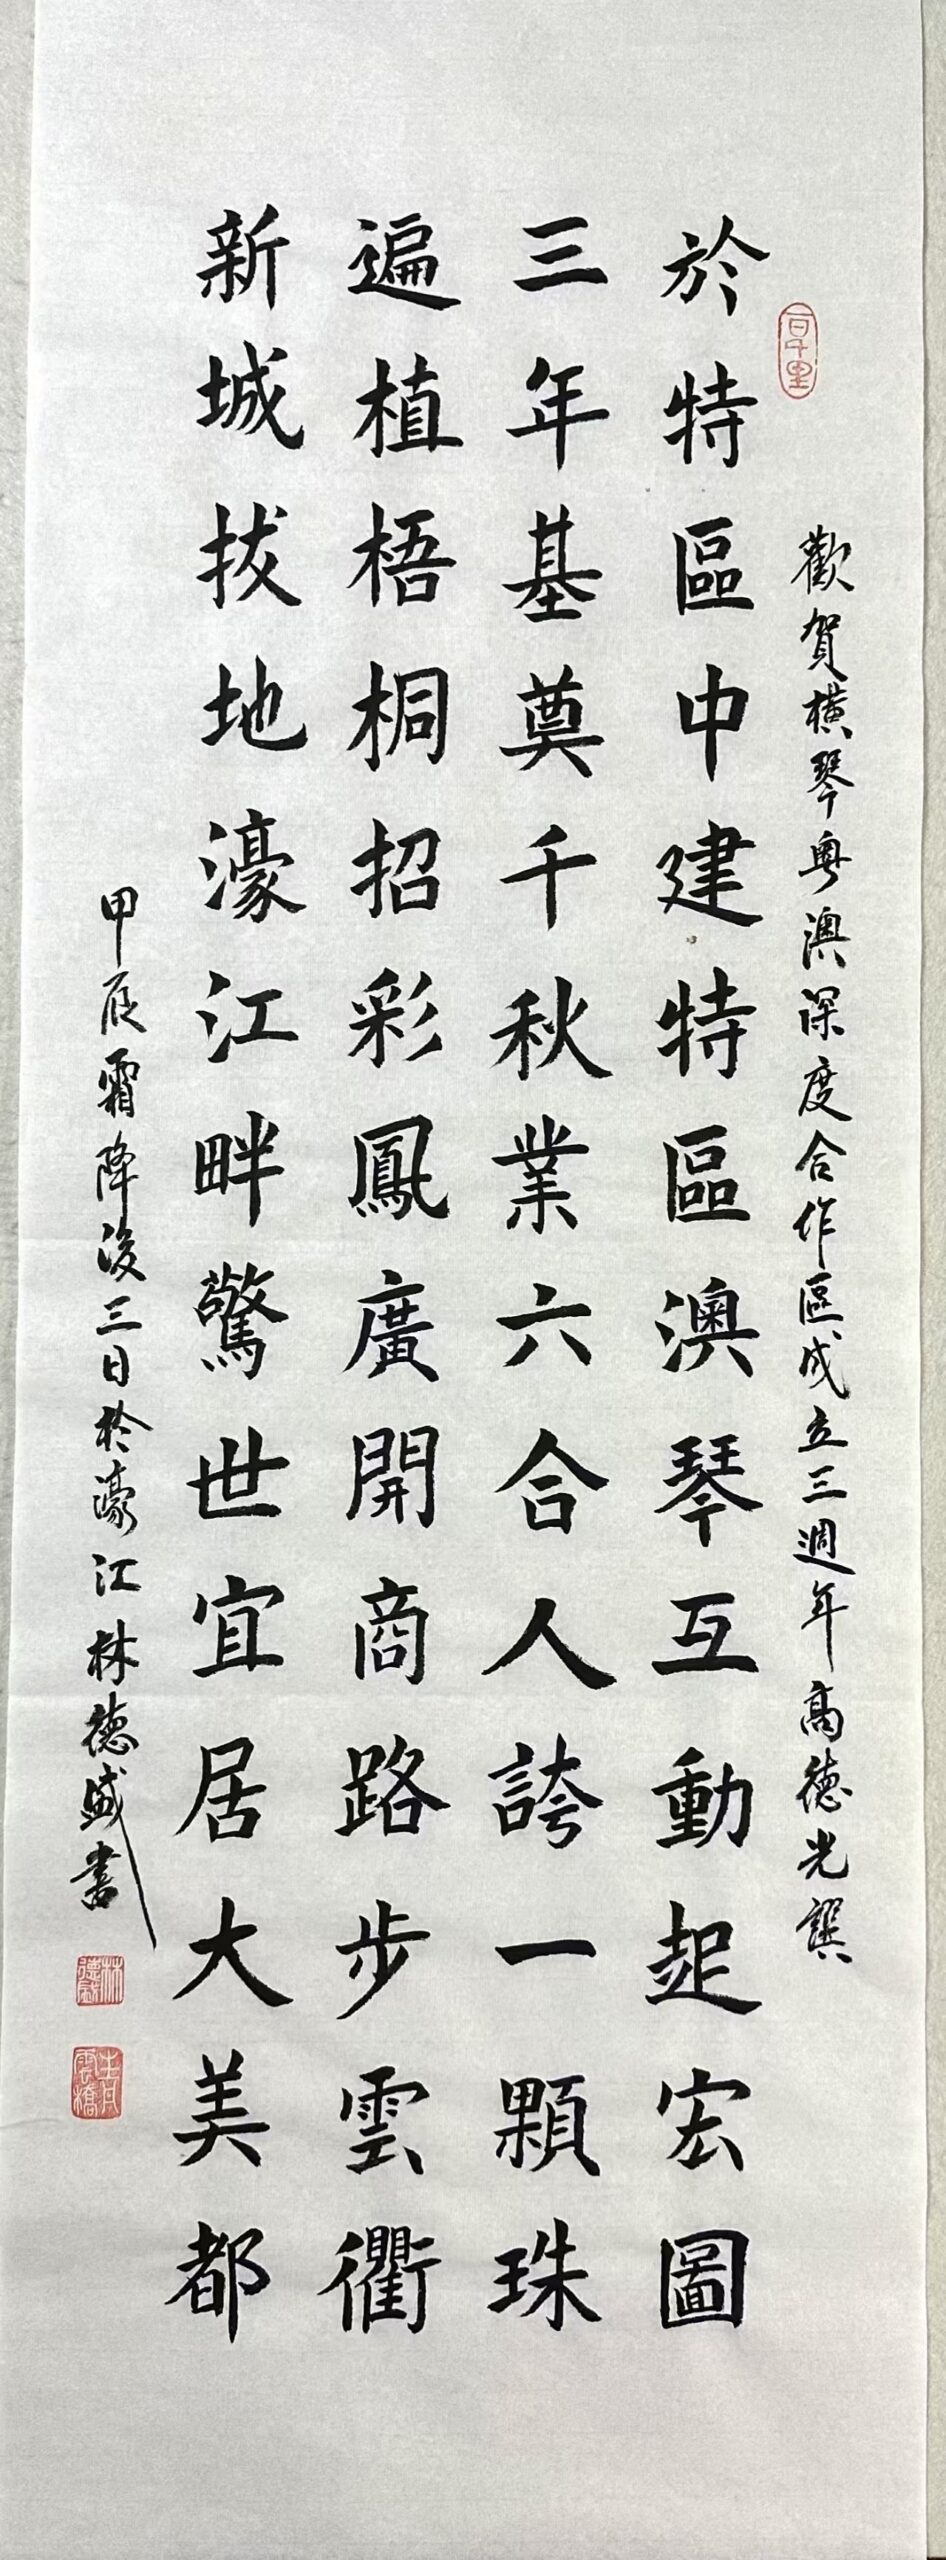 歡賀橫琴粵澳深度合作區成立三週年高德光譔
於特區中建特區澳琴互動起宏圖
三年基奠千秋業六合人誇一顆珠
遍植梧桐招彩鳳廣開商路步雲衢
新城拔地濠江畔驚世宜居大美都
甲辰霜降後三日於濠江林德盛書
林德盛